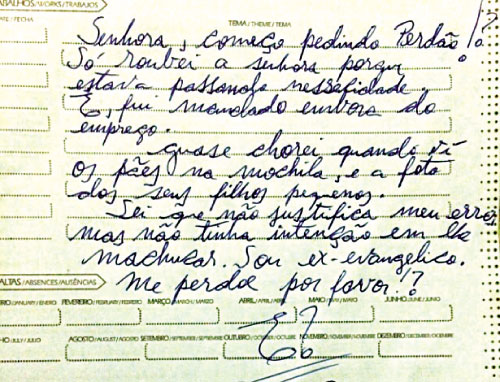 ABALHOS/WORKS/TRABAJOS
TE / FECHA
TEMA / THEME / TEMA
Senhora, começo pedindo Perdão!
Só roubei a senhora porque
estava passando nessesidade.
E, fui mandado embora do
emprego.
Quase chorei quando vi
os pães na mochila, e a foto
dos seus filhos pequenos.
Sei que não justifica meu erro,
mas não tinha intenção em lhe
machucar. Sou ex-evangelico.
Me perdoe por favor!?
ALTAS / ABSENCES / AUSÊNCIAS
FEVEREIRO / FEBRUARY / FEBRERO MARÇO / MARCH / MARZO ABRIL / APRIL / ABRIL MAIO / MAY / MAYO JUNHO / JUNE / JUNIO
AGOSTO / AUGUST / AGOSTO SETEMBRO / SEPTEMBER / SEPTIEMBRE OUTUBRO / OCTOBER / OCTUBRE NOVEMBRO / NOVEMBER / NOVIEMBRE DEZEMBRO / DECEMBER / DICIEMBRE